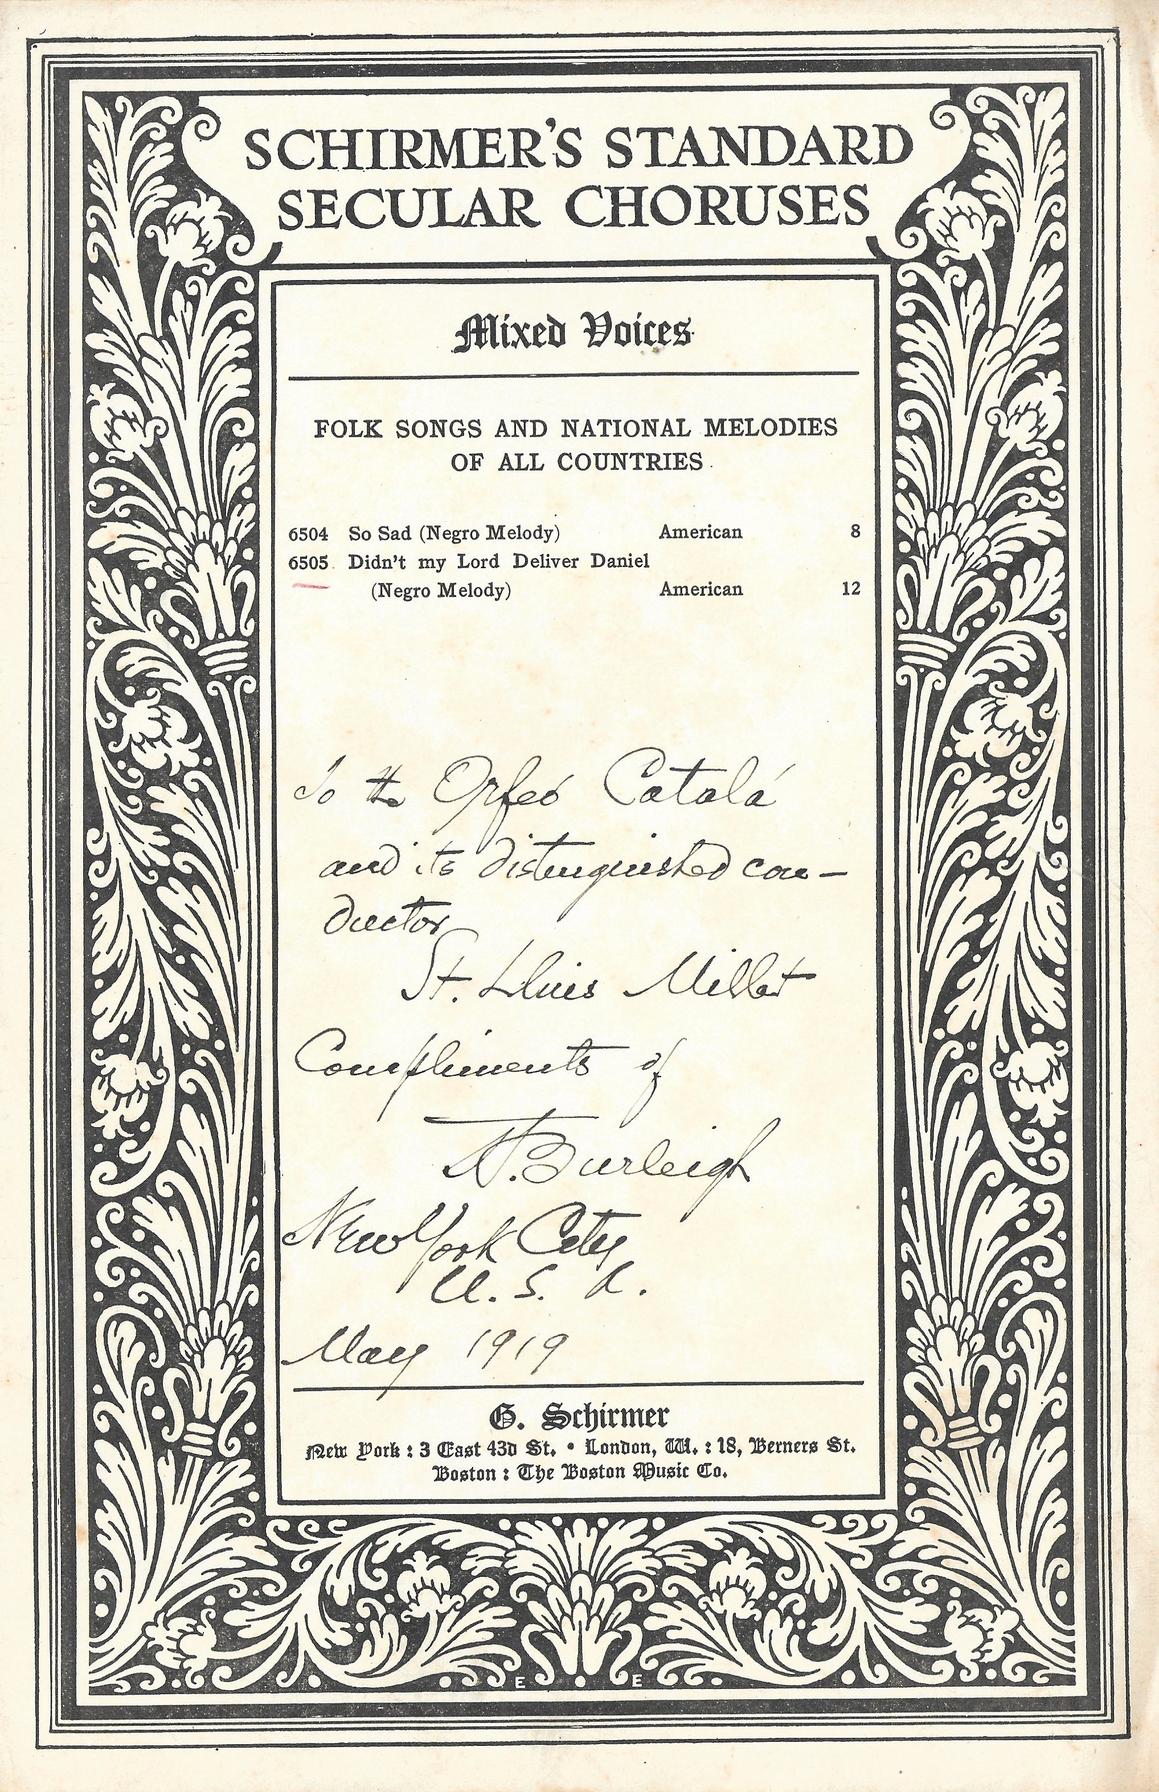 SCHIRMER'S STANDARD
SECULAR CHORUSES
Mixed Voices
FOLK SONGS AND NATIONAL MELODIES
OF ALL COUNTRIES
6504 So Sad (Negro Melody) American 8
6505 Didn't my Lord Deliver Daniel
(Negro Melody) American 12
To the Orfeó Catalá
and its distinguished con-
ductor
St. Lluis Millet
Compliments of
H. Burleigh
New York City
U. S. A.
May 1919
G. Schirmer
New York : 3 East 43d St. • London, W. : 18, Berners St.
Boston : The Boston Music Co.
E E